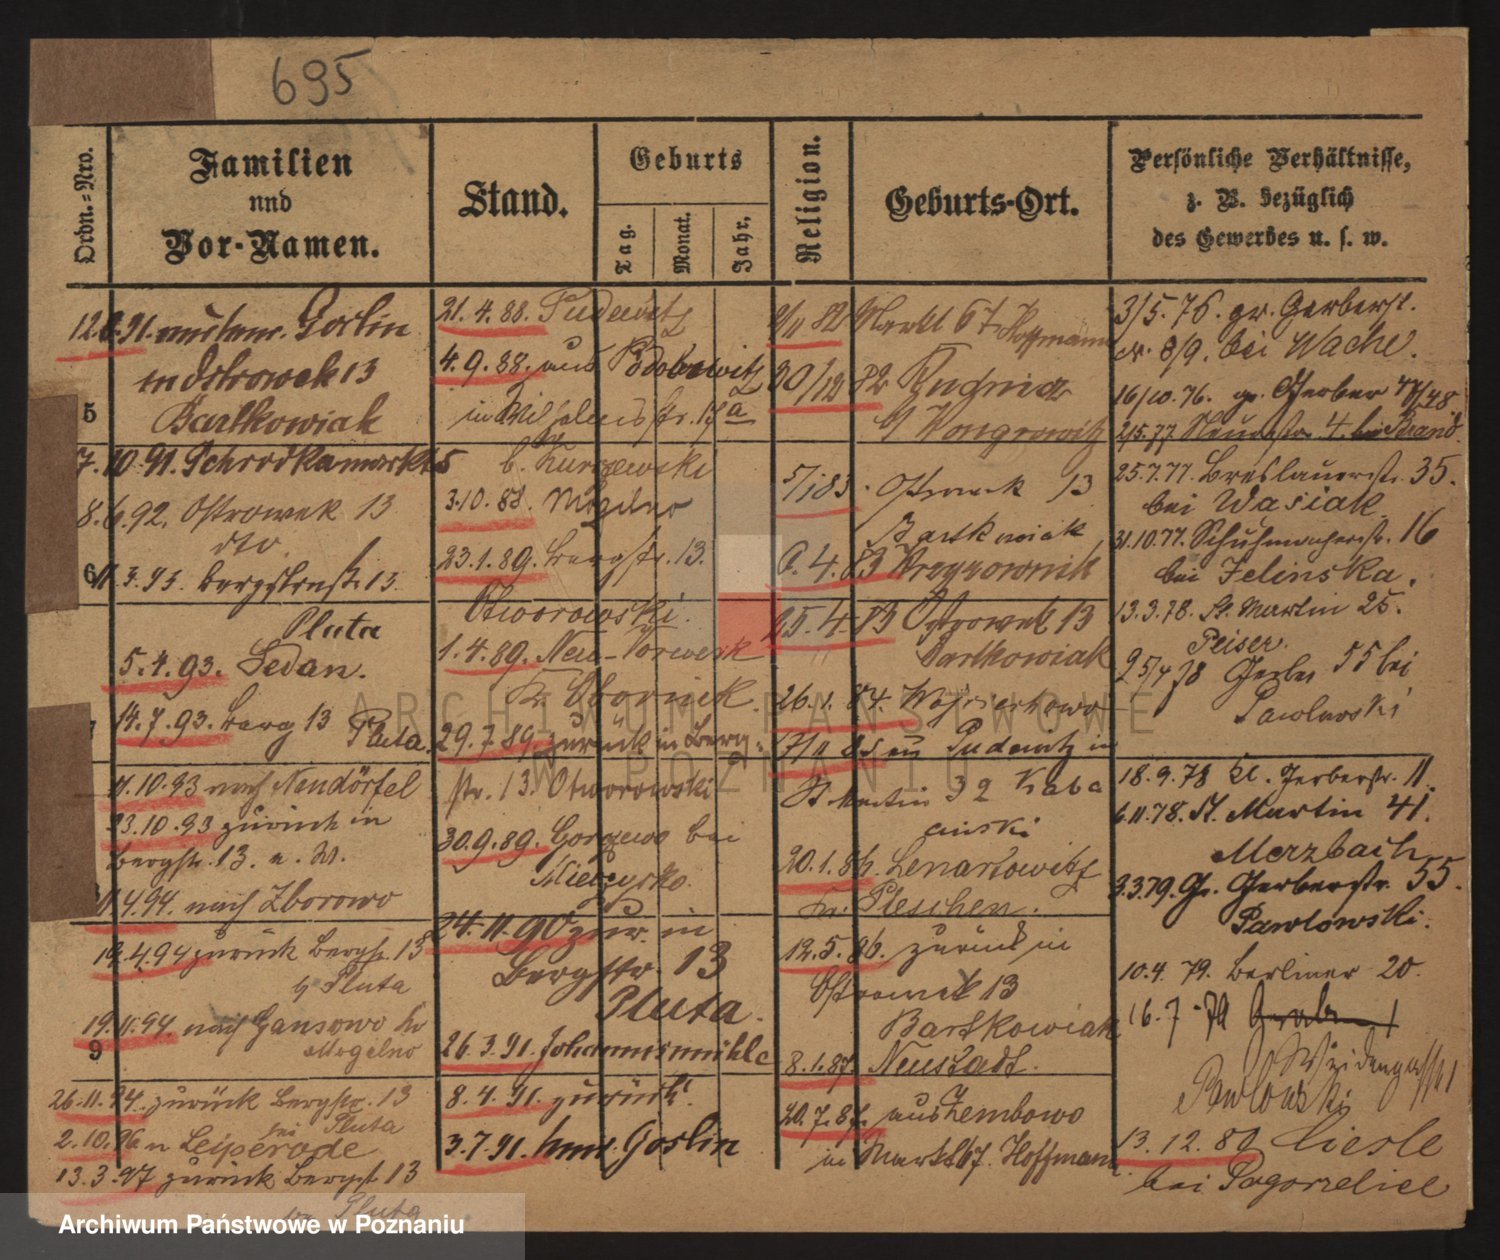 695
Ordn.-Nro.
Familien
und
Vor-Namen.
Stand.
Geburts
Tag.
Monat.
Jahr.
Religion.
Geburts-Ort.
Persönliche Verhältnisse,
z. B. bezüglich
des Gewerbes u. s. w.
5
6
9
Goslin
in Ostrowek 13
Bartkowiak
7.10.91. Schrodkamarkt 5
8.6.92. Ostrowek 13
dto.
3.93. Bergstraße 13
Pluta
5.4.93. Sedan.
14.7.93. Berg 13
Pluta.
7.10.93 nach Neudörfel
23.10.93 zurück in
Bergstr. 13. a. W.
4.94. nach Zborowo
12.4.94 zurück Bergstr. 13
b/ Pluta
19.11.94 nach Gansowo
Mogelno
26.11.94 zurück Bergstr. 13
bei Pluta
2.10.96 n Leiperode
13.3.97 zurück Bergst 13
Pluta
21.4.88. Pudewitz
4.9.88. aus
in Wilhelmstr. 17a
b. Kurzewski
3.10.88. Mogilno
23.1.89. Bergstr. 13.
Otworowski.
1.4.89. Neu-Vorwerk
Kr. Obornik.
29.7.89. zurück in Berg-
str. 13. Otworowski
30.9.89. Gorzewo bei
Mieczysko.
24.11.90 zur. in
Bergstr. 13
Pluta.
26.3.91. Johannismühle
8.4.91. zurück.
3.7.91. Goslin
9/11 82 Markt 67 Hoffmann
30/12 82 Rudnicz
b/ Wongrowitz
5/1 83. Ostrowek 13
Bartkowiak
6.4.83 Przyzownik
25.4.83 Ostrowek 13
Bartkowiak
26.1.84. Wojciechowo
Pudewitz in
St Martin 32 Kaba
cinski
20.1.86. Lenartowitz
Kr. Pleschen.
12.5.86. zurück in
Ostrowek 13
Bartkowiak
8.1.87. Neustadt.
20.7.87. aus Zembowo
in Markt 67. Hoffmann
3/5.76. gr. Gerberst.
bei Wache.
16/10.76. gr. Gerber
2/5.77 4. bei Brand.
25.7.77. Breslauerstr. 35.
bei Wasiak.
31.10.77. Schuhmacherstr. 16
bei Jelinska.
13.3.78. St. Martin 25.
Peiser.
25/4 78 Gerber 55 bei
Pawlowski
18.9.78 kl. Gerberstr. 11.
6.11.78. St. Martin 41.
Merzbach
3.3.79. Gr. Gerberstr. 55.
Pawlowski.
10.4.79. Berliner 20.
16.7.79
Weidengasse 1
Pawlowski
13.12.80 Ciesle
bei Pogorzelice
ARCHIWUM PAŃSTWOWE
W POZNANIU
Archiwum Państwowe w Poznaniu